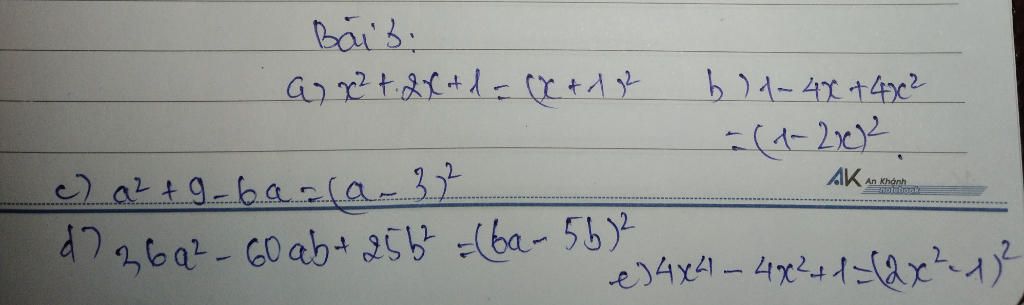 Bài 3:
a) x² + 2x + 1 = (x + 1)² b) 1 - 4x + 4x²
= (1 - 2x)².
c) a² + 9 - 6a = (a - 3)²
AK An Khánh notebook
d) 36a² - 60ab + 25b² = (6a - 5b)²
e) 4x⁴ - 4x² + 1 = (2x² - 1)²